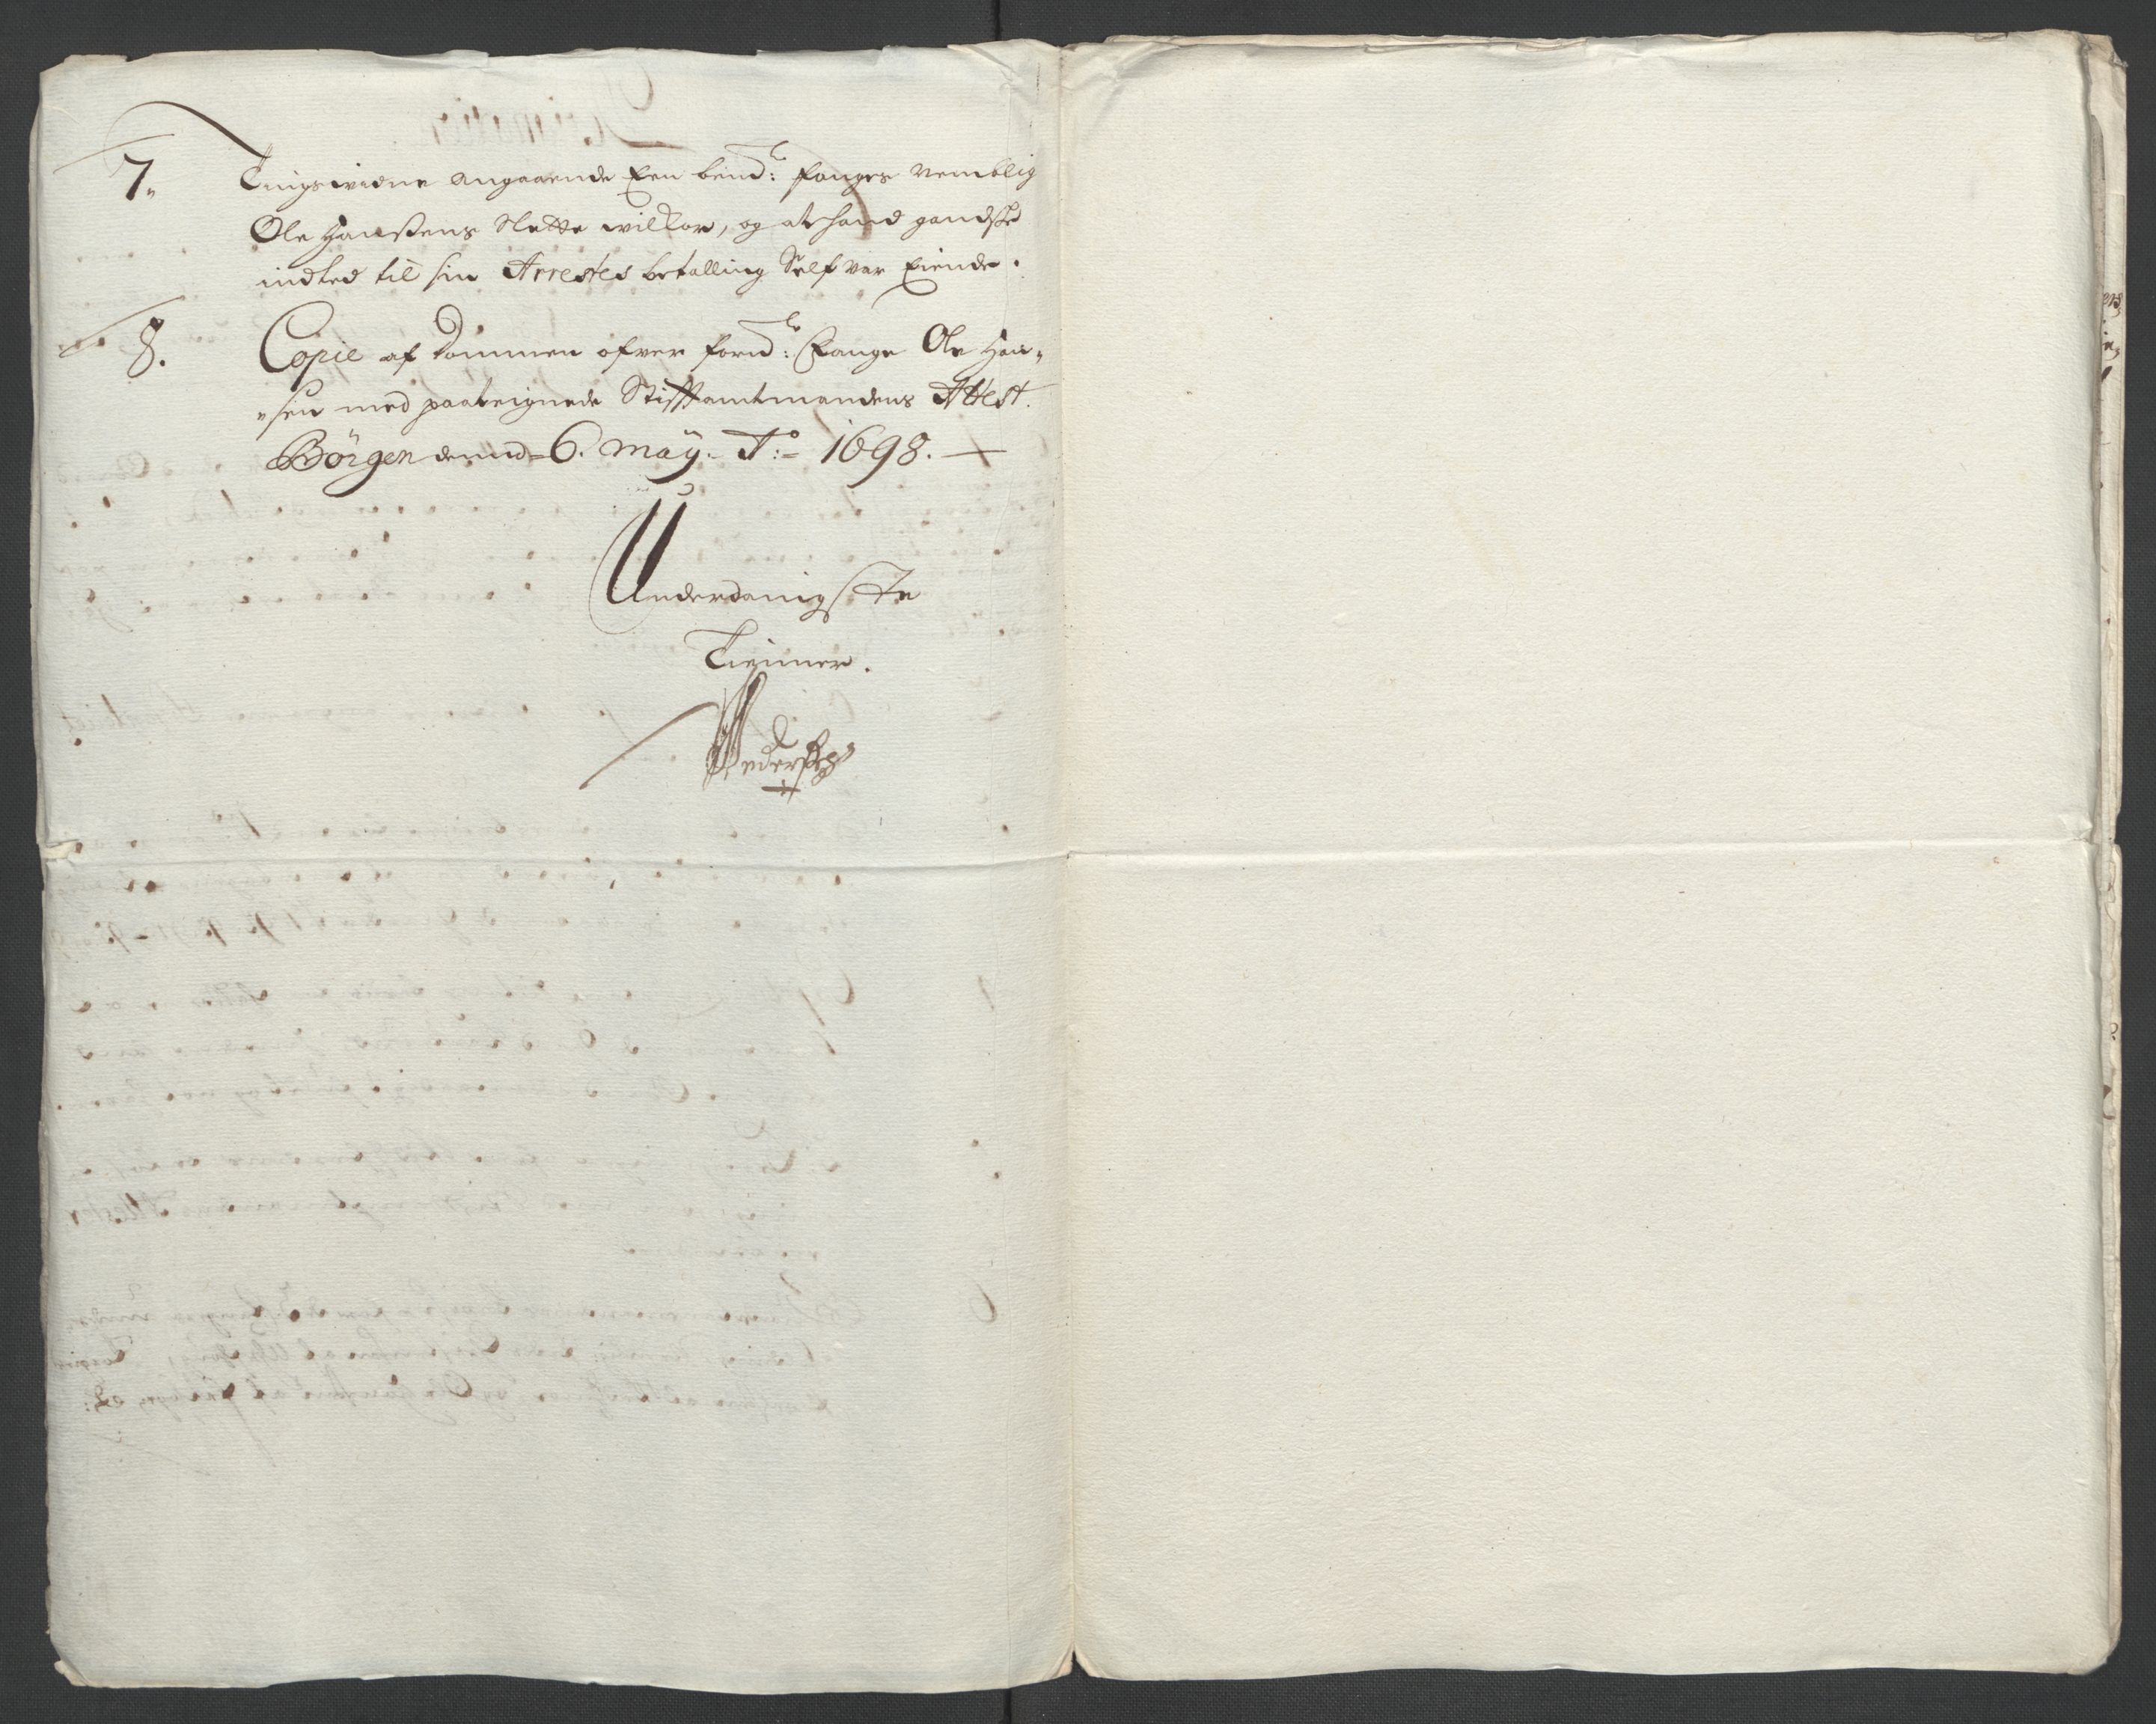 7. Tingsvidne angaaende Een bemd: fanges nemblig
Ole Hanßens Slette wilkor, og at hand gandske
indted til sin Arrestes betalling Self var Eiende.
8. Copie af Dommen ofver forn: Fange Ole Han-
sen med paateignede Stifftamtmandens Attest.
Börgen dend 6. may. Ao: 1698.
Underdanigste
Tienner.